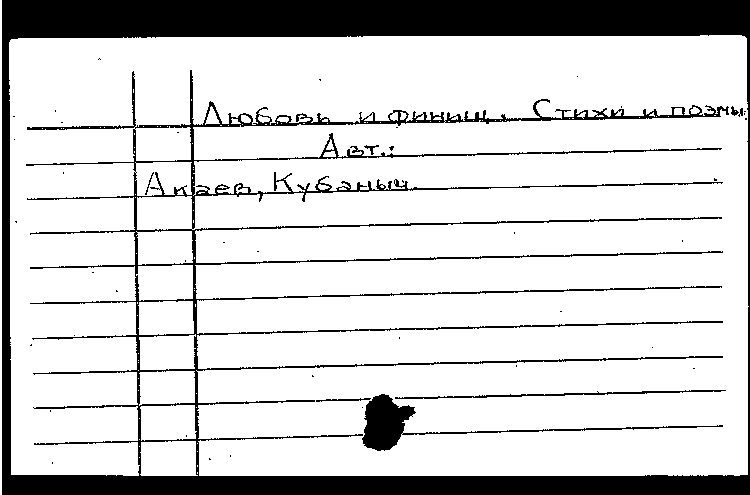 Любовь и финиш. Стихи и поэмы
Авт.:
Акаев, Кубаныч